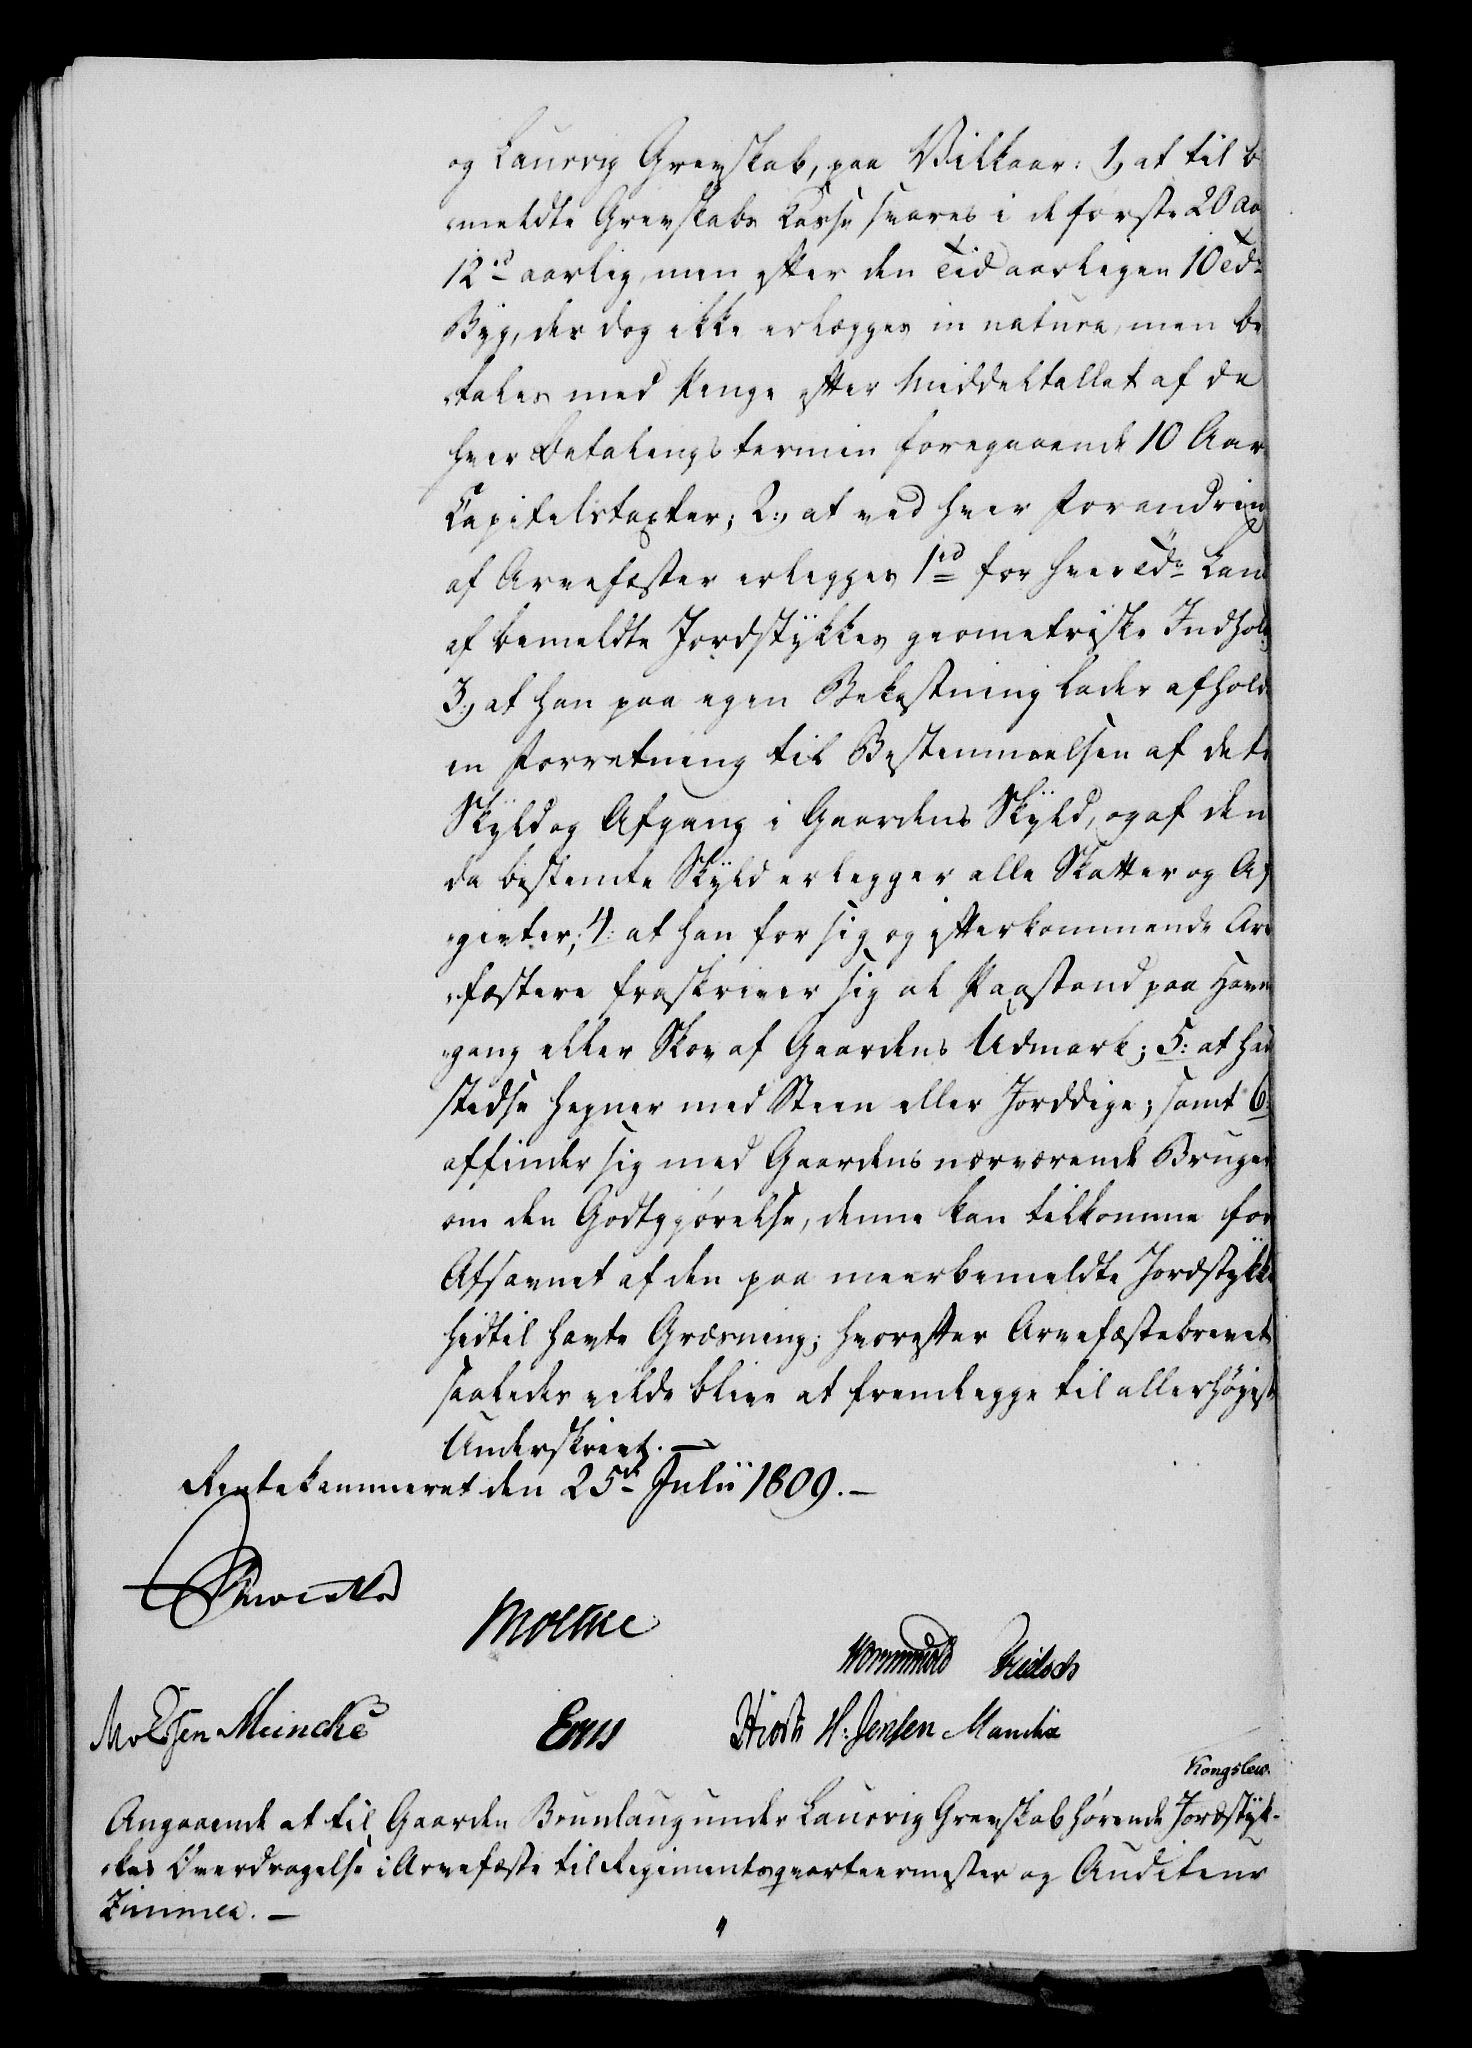 og Laurvig Grevskab, paa Vilkaar: 1, at til be
meldte Grevskabs Casse svares i de første 20 Aa
12 rd aarlig, men efter den Tid aarligen 10 Tdr
Byg, der dog ikke erlægges in natura, men be
tales med Penge efter Middeltallet af de
hver Betalings termin foregaaende 10 Aars
Capitelstaxter; 2, at ved hver Forandring
af Arvefæster erlegges 1 rd for hver Tde Land
af bemeldte Jordstykkes geometriske Indhold
3, at han paa egen Bekostning lader afholde
en Forretning til Bestemmelsen af dets
Skyld og Afgang i Gaardens Skyld, og af den
da bestemte Skyld erlegger alle Skatter og Af
givter; 4: at han for sig og efterkommende Arve
fæstere fraskriver sig al Paastand paa Havne
gang eller Skov af Gaardens Udmark; 5: at han
stedse hegner med Steen eller Jorddige; samt 6:
affinder sig med Gaardens nærværende Bruger
om den Godtgjørelse, denne kan tilkomme for
Afsavnet af den paa meerbemeldte Jordstykke
hidtil havte Græsning; hvorefter Arvefæstebrevet
saaledes vilde blive at fremlegge til allerhøjeste
Underskrivt. —
Rentekammeret den 25de Julii 1809. —
Moltke
Wormskiold
Meincke
H: Jensen Manthe
Kongslew.
Angaaende et til Gaarden Brunlaug under Laurvig Grevskab hørende Jordstyk-
kes Overdragelse i Arvefæste til Regimentsqvarteermester og Auditeur
Zimmer. —